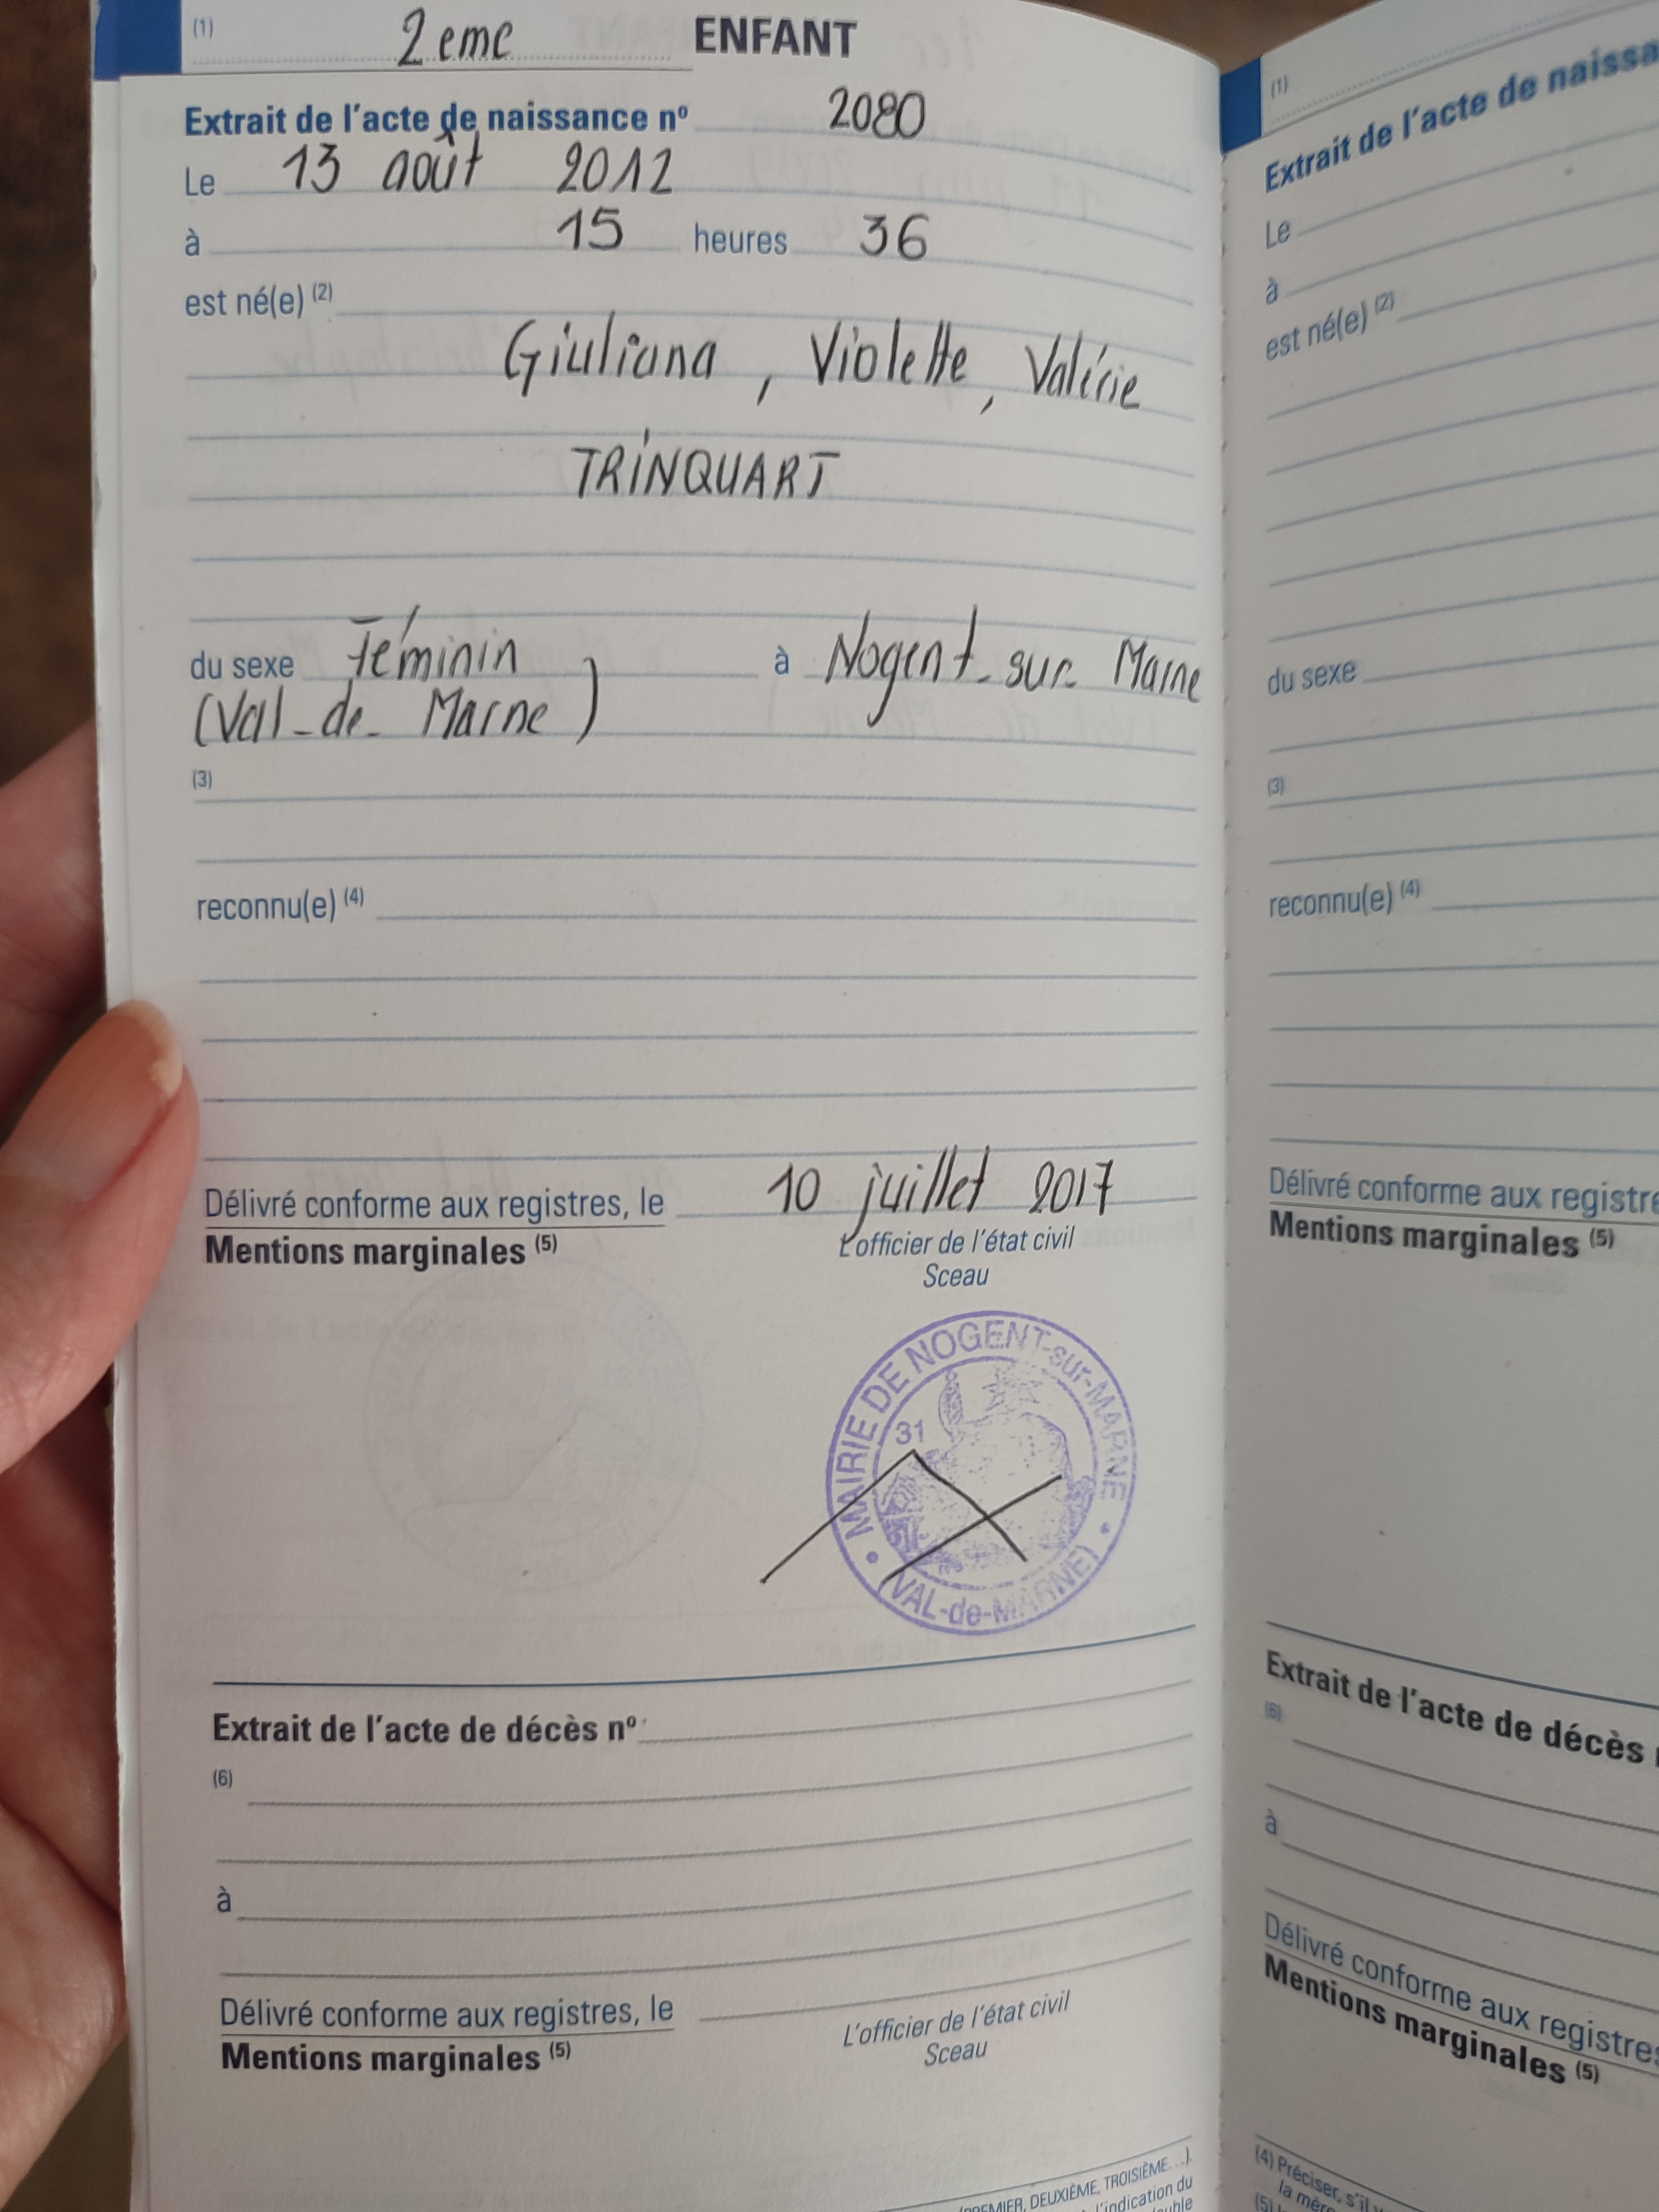 (1) 2eme ENFANT
Extrait de l'acte de naissance nº 2080
Le 13 août 2012
à 15 heures 36
est né(e) (2)
Giuliana, Violette, Valérie
TRINQUART
du sexe Féminin à Nogent-sur-Marne
(Val-de-Marne)
(3)
reconnu(e) (4)
Délivré conforme aux registres, le 10 juillet 2017
Mentions marginales (5)
L'officier de l'état civil
Sceau
MAIRIE DE NOGENT-sur-MARNE
31
(VAL-de-MARNE)
Extrait de l'acte de décès nº
(6)
à
Délivré conforme aux registres, le
Mentions marginales (5)
L'officier de l'état civil
Sceau
DEUXIÈME, TROISIÈME...).
l'indication du
(1)
Extrait de l'acte de
Le
à
est né(e) (2)
du sexe
(3)
reconnu(e) (4)
Délivré conforme aux
Mentions marginales (5)
Extrait de l'acte de décès
(6)
à
Délivré conforme aux
Mentions marginales (5)
(4) Préciser, s'il
la
(5)